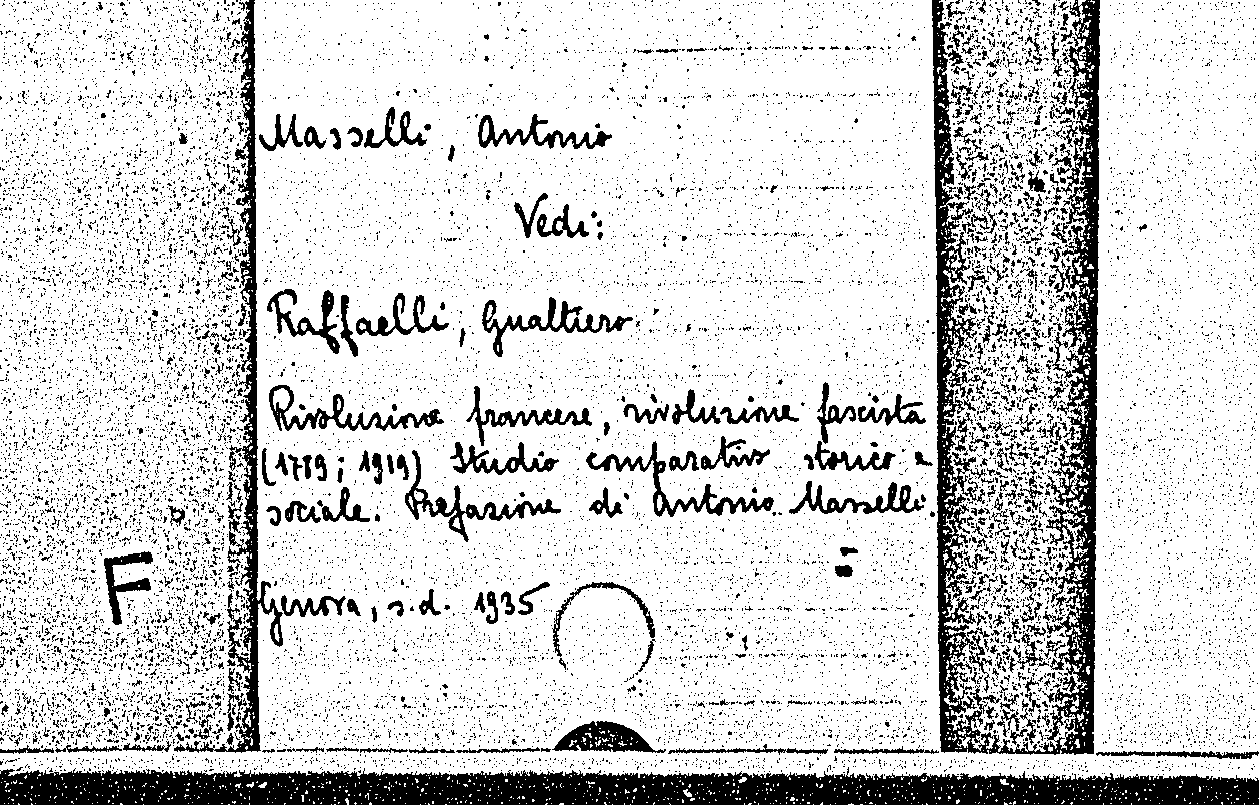 Masselli, Antonio
Vedi:
Raffaelli, Gualtiero
Rivoluzione francese, rivoluzione fascista
(1789; 1919) Studio comparativo storico e
sociale. Prefazione di Antonio Masselli.
F
Genova, s.d. 1935